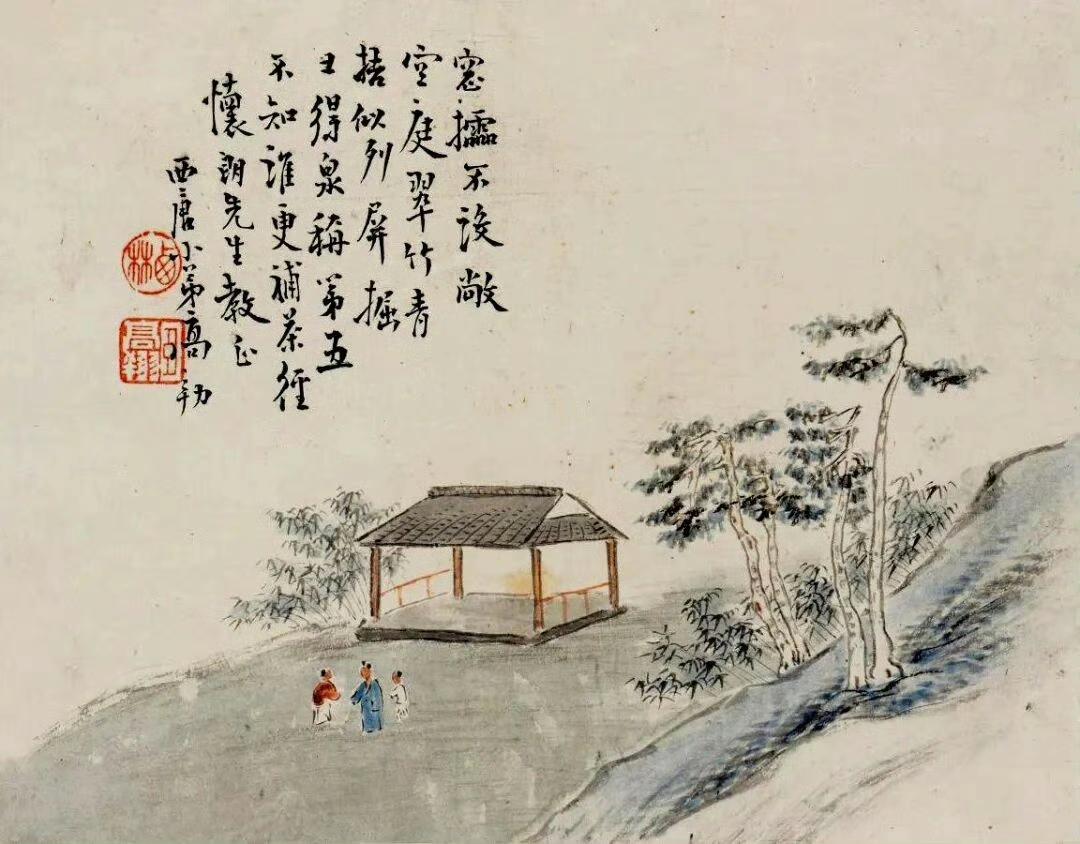 窓櫺不設敞
空庭翠竹青
梧似列屏掘
土得泉稱第五
不知誰更補茶經
懷朗先生教正
西唐小弟高翔